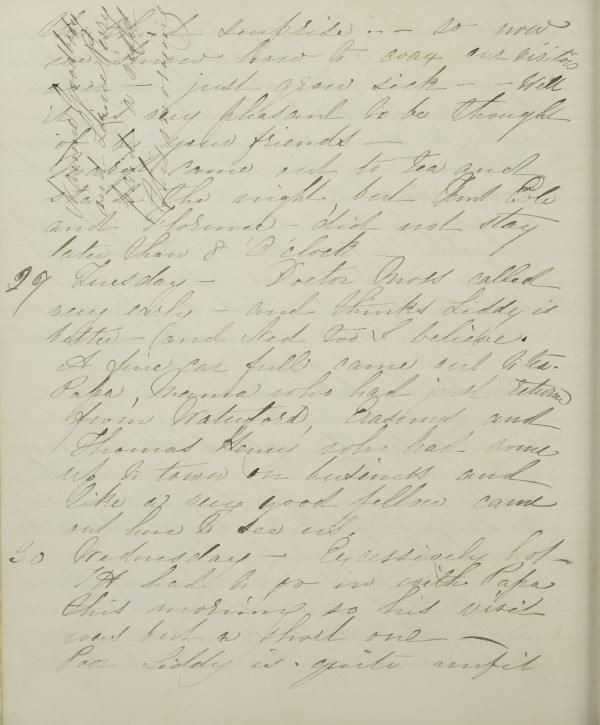 surprise -- so now
we know how to coax our visitors
just grow sick -- Well
it is very pleasant to be thought
of by your friends -
came out to tea and
staid the night, but Aunt Cole
and Florence - did not stay
later than 8 O'clock
29 Tuesday - Doctor Moss called
very early - and thinks Liddy is
better - (and Ned too I believe.
A fine car full came out to tea.
Papa, Mamma who had just returned
from Waterford, Erasmus and
Thomas Henry who had come
up to town on business and
like a very good fellow came
out here to see us.
30 Wednesday - Excessively hot -
TH had to go in with Papa
this morning so his visit
was but a short one -
Poor Liddy is quite unfit